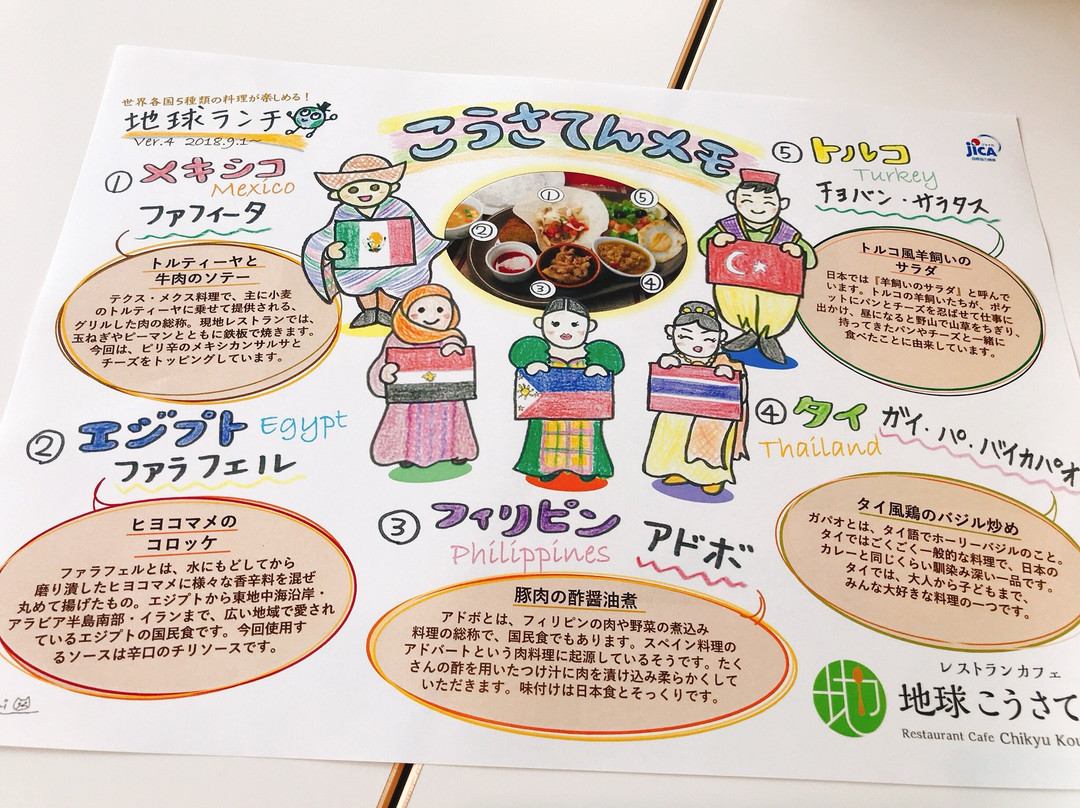 世界各国5種類の料理が楽しめる!
地球ランチ
Ver.4 2018.9.1~
こうさてんメモ
JICA
① メキシコ
Mexico
ファフィータ
トルティーヤと
牛肉のソテー
テクス・メクス料理で、主に小麦
のトルティーヤに乗せて提供される、
グリルした肉の総称。現地レストランでは、
玉ねぎやピーマンとともに鉄板で焼きます。
今回は、ピリ辛のメキシカンサルサと
チーズをトッピングしています。
①
②
③
④
⑤
⑤ トルコ
Turkey
チョバン・サラタス
トルコ風羊飼いの
サラダ
日本では『羊飼いのサラダ』と呼んで
います。トルコの羊飼いたちが、ポケ
ットにパンとチーズを忍ばせて仕事に
出かけ、昼になると野山で山草をちぎり、
持ってきたパンやチーズと一緒に
食べたことに由来しています。
② エジプト Egypt
ファラフェル
ヒヨコマメの
コロッケ
ファラフェルとは、水にもどしてから
磨り潰したヒヨコマメに様々な香辛料を混ぜ
丸めて揚げたもの。エジプトから東地中海沿岸・
アラビア半島南部・イランまで、広い地域で愛され
ているエジプトの国民食です。今回使用す
るソースは辛口のチリソースです。
③ フィリピン
Philippines
アドボ
豚肉の酢醤油煮
アドボとは、フィリピンの肉や野菜の煮込み
料理の総称で、国民食でもあります。スペイン料理の
アドバートという肉料理に起源しているそうです。たく
さんの酢を用いたつけ汁に肉を漬け込み柔らかくして
いただきます。味付けは日本食とそっくりです。
④ タイ
Thailand
ガイ・パ・バイカパオ
タイ風鶏のバジル炒め
ガパオとは、タイ語でホーリーバジルのこと。
タイではごくごく一般的な料理で、日本の
カレーと同じくらい馴染み深い一品です。
タイでは、大人から子どもまで、
みんな大好きな料理の一つです。
レストランカフェ
地球こうさて
Restaurant Cafe Chikyu Kou